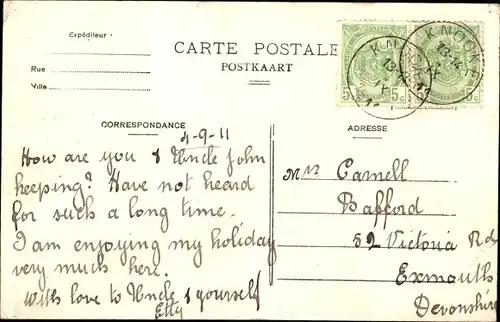 Expéditeur :
Rue
Ville
CARTE POSTALE
POSTKAART
KNOCKE
KNOCKE
5 c 5 c
CORRESPONDANCE
ADRESSE
4-9-11
How are you & Uncle John
keeping? Have not heard
for such a long time.
I am enjoying my holiday
very much here.
With love to Uncle & yourself
Etty
Mrs Carnell
Bafford
52 Victoria Rd
Exmouth
Devonshire